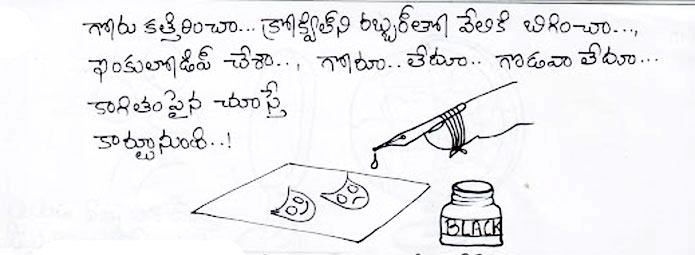 గోరు కత్తిరించా... క్రోక్విల్‌ని రబ్బర్‌తో వేలికి బిగించా...,
ఇంకులో డిప్ చేశా.., గోరూ.. లేదూ.. గొడవా లేదూ...
కాగితంపైన చూస్తే
కార్టూనుంది..!
BLACK